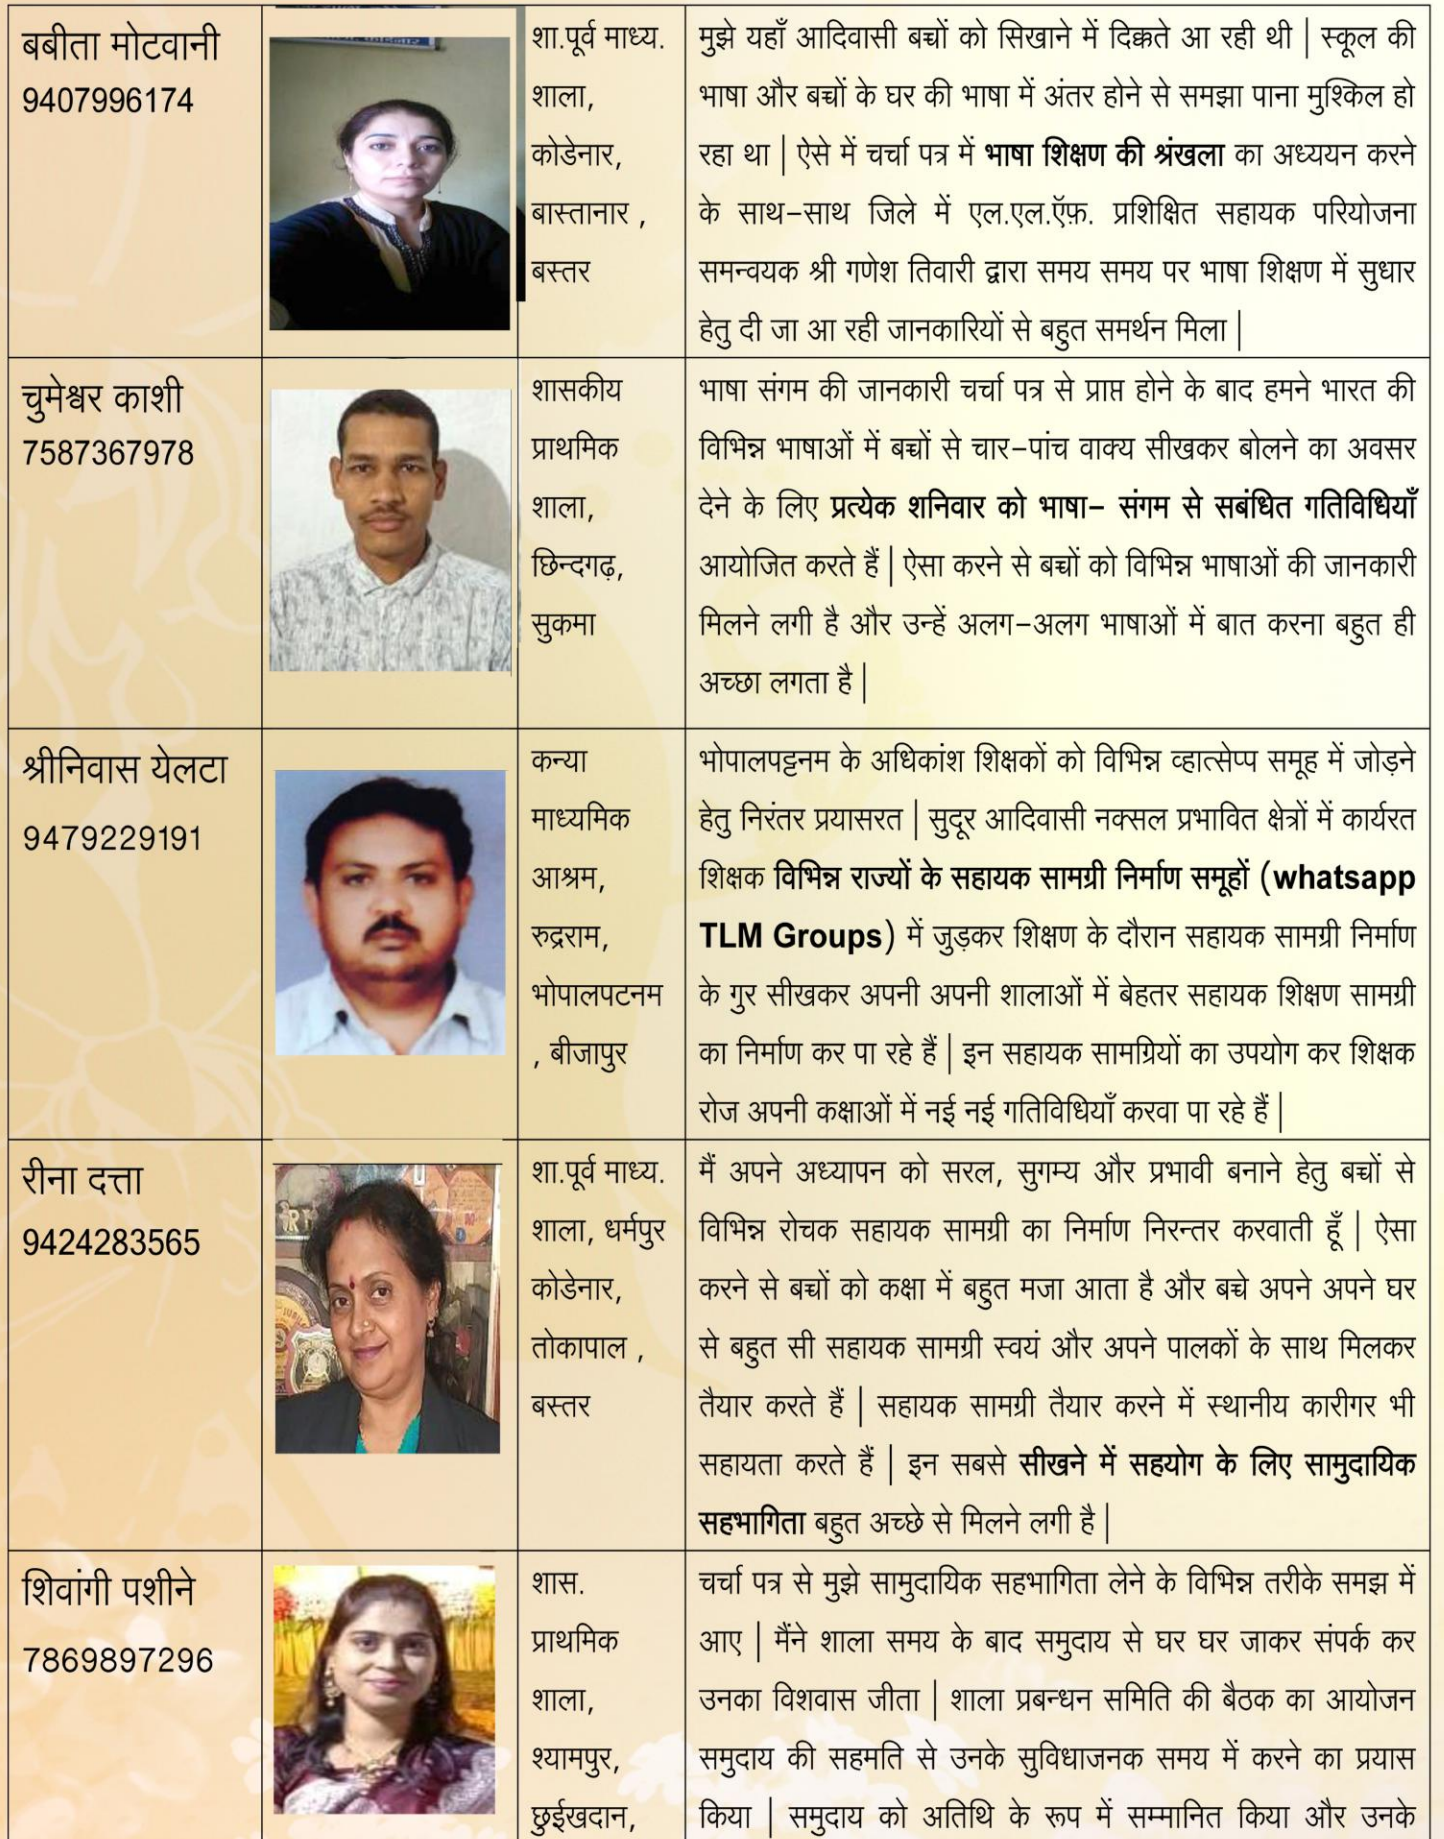 बबीता मोटवानी
9407996174
शा.पूर्व माध्य.
शाला,
कोडेनार,
बास्तानार ,
बस्तर
मुझे यहाँ आदिवासी बच्चों को सिखाने में दिक्कते आ रही थी | स्कूल की
भाषा और बच्चों के घर की भाषा में अंतर होने से समझा पाना मुश्किल हो
रहा था | ऐसे में चर्चा पत्र में भाषा शिक्षण की श्रंखला का अध्ययन करने
के साथ-साथ जिले में एल.एल.ऍफ़. प्रशिक्षित सहायक परियोजना
समन्वयक श्री गणेश तिवारी द्वारा समय समय पर भाषा शिक्षण में सुधार
हेतु दी जा आ रही जानकारियों से बहुत समर्थन मिला |
चुमेश्वर काशी
7587367978
शासकीय
प्राथमिक
शाला,
छिन्दगढ़,
सुकमा
भाषा संगम की जानकारी चर्चा पत्र से प्राप्त होने के बाद हमने भारत की
विभिन्न भाषाओं में बच्चों से चार-पांच वाक्य सीखकर बोलने का अवसर
देने के लिए प्रत्येक शनिवार को भाषा- संगम से सबंधित गतिविधियाँ
आयोजित करते हैं | ऐसा करने से बच्चों को विभिन्न भाषाओं की जानकारी
मिलने लगी है और उन्हें अलग-अलग भाषाओं में बात करना बहुत ही
अच्छा लगता है |
श्रीनिवास येलटा
9479229191
कन्या
माध्यमिक
आश्रम,
रुद्रराम,
भोपालपटनम
, बीजापुर
भोपालपट्टनम के अधिकांश शिक्षकों को विभिन्न व्हात्सेप्प समूह में जोड़ने
हेतु निरंतर प्रयासरत | सुदूर आदिवासी नक्सल प्रभावित क्षेत्रों में कार्यरत
शिक्षक विभिन्न राज्यों के सहायक सामग्री निर्माण समूहों (whatsapp
TLM Groups) में जुड़कर शिक्षण के दौरान सहायक सामग्री निर्माण
के गुर सीखकर अपनी अपनी शालाओं में बेहतर सहायक शिक्षण सामग्री
का निर्माण कर पा रहे हैं | इन सहायक सामग्रियों का उपयोग कर शिक्षक
रोज अपनी कक्षाओं में नई नई गतिविधियाँ करवा पा रहे हैं |
रीना दत्ता
9424283565
शा.पूर्व माध्य.
शाला, धर्मपुर
कोडेनार,
तोकापाल ,
बस्तर
मैं अपने अध्यापन को सरल, सुगम्य और प्रभावी बनाने हेतु बच्चों से
विभिन्न रोचक सहायक सामग्री का निर्माण निरन्तर करवाती हूँ | ऐसा
करने से बच्चों को कक्षा में बहुत मजा आता है और बच्चे अपने अपने घर
से बहुत सी सहायक सामग्री स्वयं और अपने पालकों के साथ मिलकर
तैयार करते हैं | सहायक सामग्री तैयार करने में स्थानीय कारीगर भी
सहायता करते हैं | इन सबसे सीखने में सहयोग के लिए सामुदायिक
सहभागिता बहुत अच्छे से मिलने लगी है |
शिवांगी पशीने
7869897296
शास.
प्राथमिक
शाला,
श्यामपुर,
छुईखदान,
चर्चा पत्र से मुझे सामुदायिक सहभागिता लेने के विभिन्न तरीके समझ में
आए | मैंने शाला समय के बाद समुदाय से घर घर जाकर संपर्क कर
उनका विशवास जीता | शाला प्रबन्धन समिति की बैठक का आयोजन
समुदाय की सहमति से उनके सुविधाजनक समय में करने का प्रयास
किया | समुदाय को अतिथि के रूप में सम्मानित किया और उनके